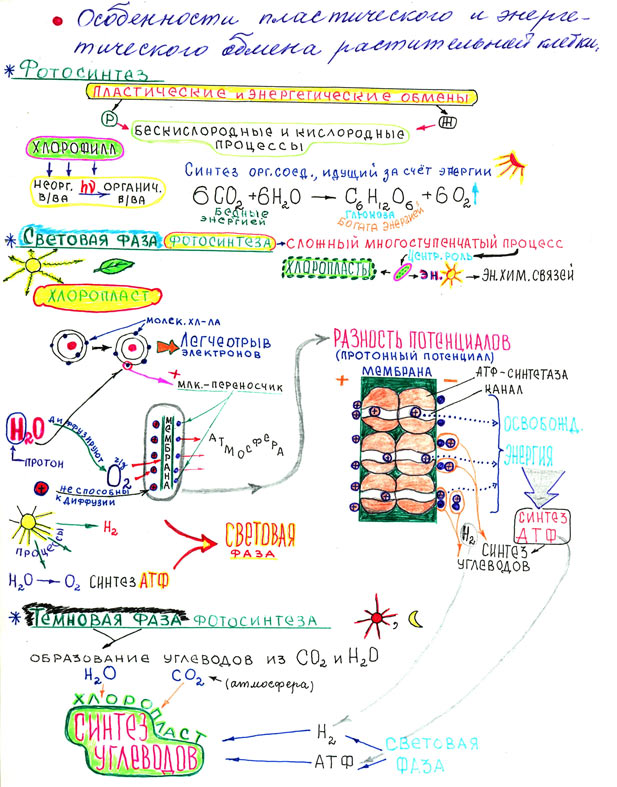 • Особенности пластического и энерге-
тического обмена растительной клетки.
* Фотосинтез
ПЛАСТИЧЕСКИЕ и ЭНЕРГЕТИЧЕСКИЕ ОБМЕНЫ
Р Ж
БЕСКИСЛОРОДНЫЕ И КИСЛОРОДНЫЕ
ПРОЦЕССЫ
ХЛОРОФИЛЛ
НЕОРГ. hν ОРГАНИЧ.
В/ВА В/ВА
СИНТЕЗ ОРГ.СОЕД., ИДУЩИЙ ЗА СЧЁТ ЭНЕРГИИ
6CO2+6H2O → C6H12O6+6O2↑
БЕДНЫЕ
ЭНЕРГИЕЙ
ГЛЮКОЗА
БОГАТА ЭНЕРГИЕЙ
* СВЕТОВАЯ ФАЗА ФОТОСИНТЕЗА → СЛОЖНЫЙ МНОГОСТУПЕНЧАТЫЙ ПРОЦЕСС
ЦЕНТР. РОЛЬ
ХЛОРОПЛАСТЫ ЭН. → ЭН.ХИМ.СВЯЗЕЙ
ХЛОРОПЛАСТ
МОЛЕК. ХЛ-ЛА
ЛЕГЧЕОТРЫВ
ЭЛЕКТРОНОВ
+ МЛК.-ПЕРЕНОСЧИК
H2O ДИФФУЗИРУЮТ
ПРОТОН
O2
МЕМБРАНА
АТМОСФЕРА
+ НЕ СПОСОБНЫ
К ДИФФУЗИИ
РАЗНОСТЬ ПОТЕНЦИАЛОВ
(ПРОТОННЫЙ ПОТЕНЦИАЛ)
+ МЕМБРАНА −
АТФ-СИНТЕТАЗА
КАНАЛ
ОСВОБОЖД.
ЭНЕРГИЯ
СИНТЕЗ
АТФ
H2
СИНТЕЗ
УГЛЕВОДОВ
ПРОЦЕССЫ → H2
H2O → O2 СИНТЕЗ АТФ
СВЕТОВАЯ
ФАЗА
* ТЕМНОВАЯ ФАЗА ФОТОСИНТЕЗА
ОБРАЗОВАНИЕ УГЛЕВОДОВ ИЗ CO2 и H2O
H2O CO2 (атмосфера)
ХЛОРОПЛАСТ
СИНТЕЗ
УГЛЕВОДОВ
H2
АТФ
СВЕТОВАЯ
ФАЗА